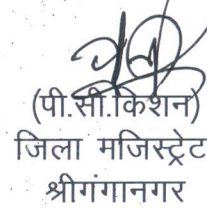 (पी.सी.किशन)
जिला मजिस्ट्रेट
श्रीगंगानगर